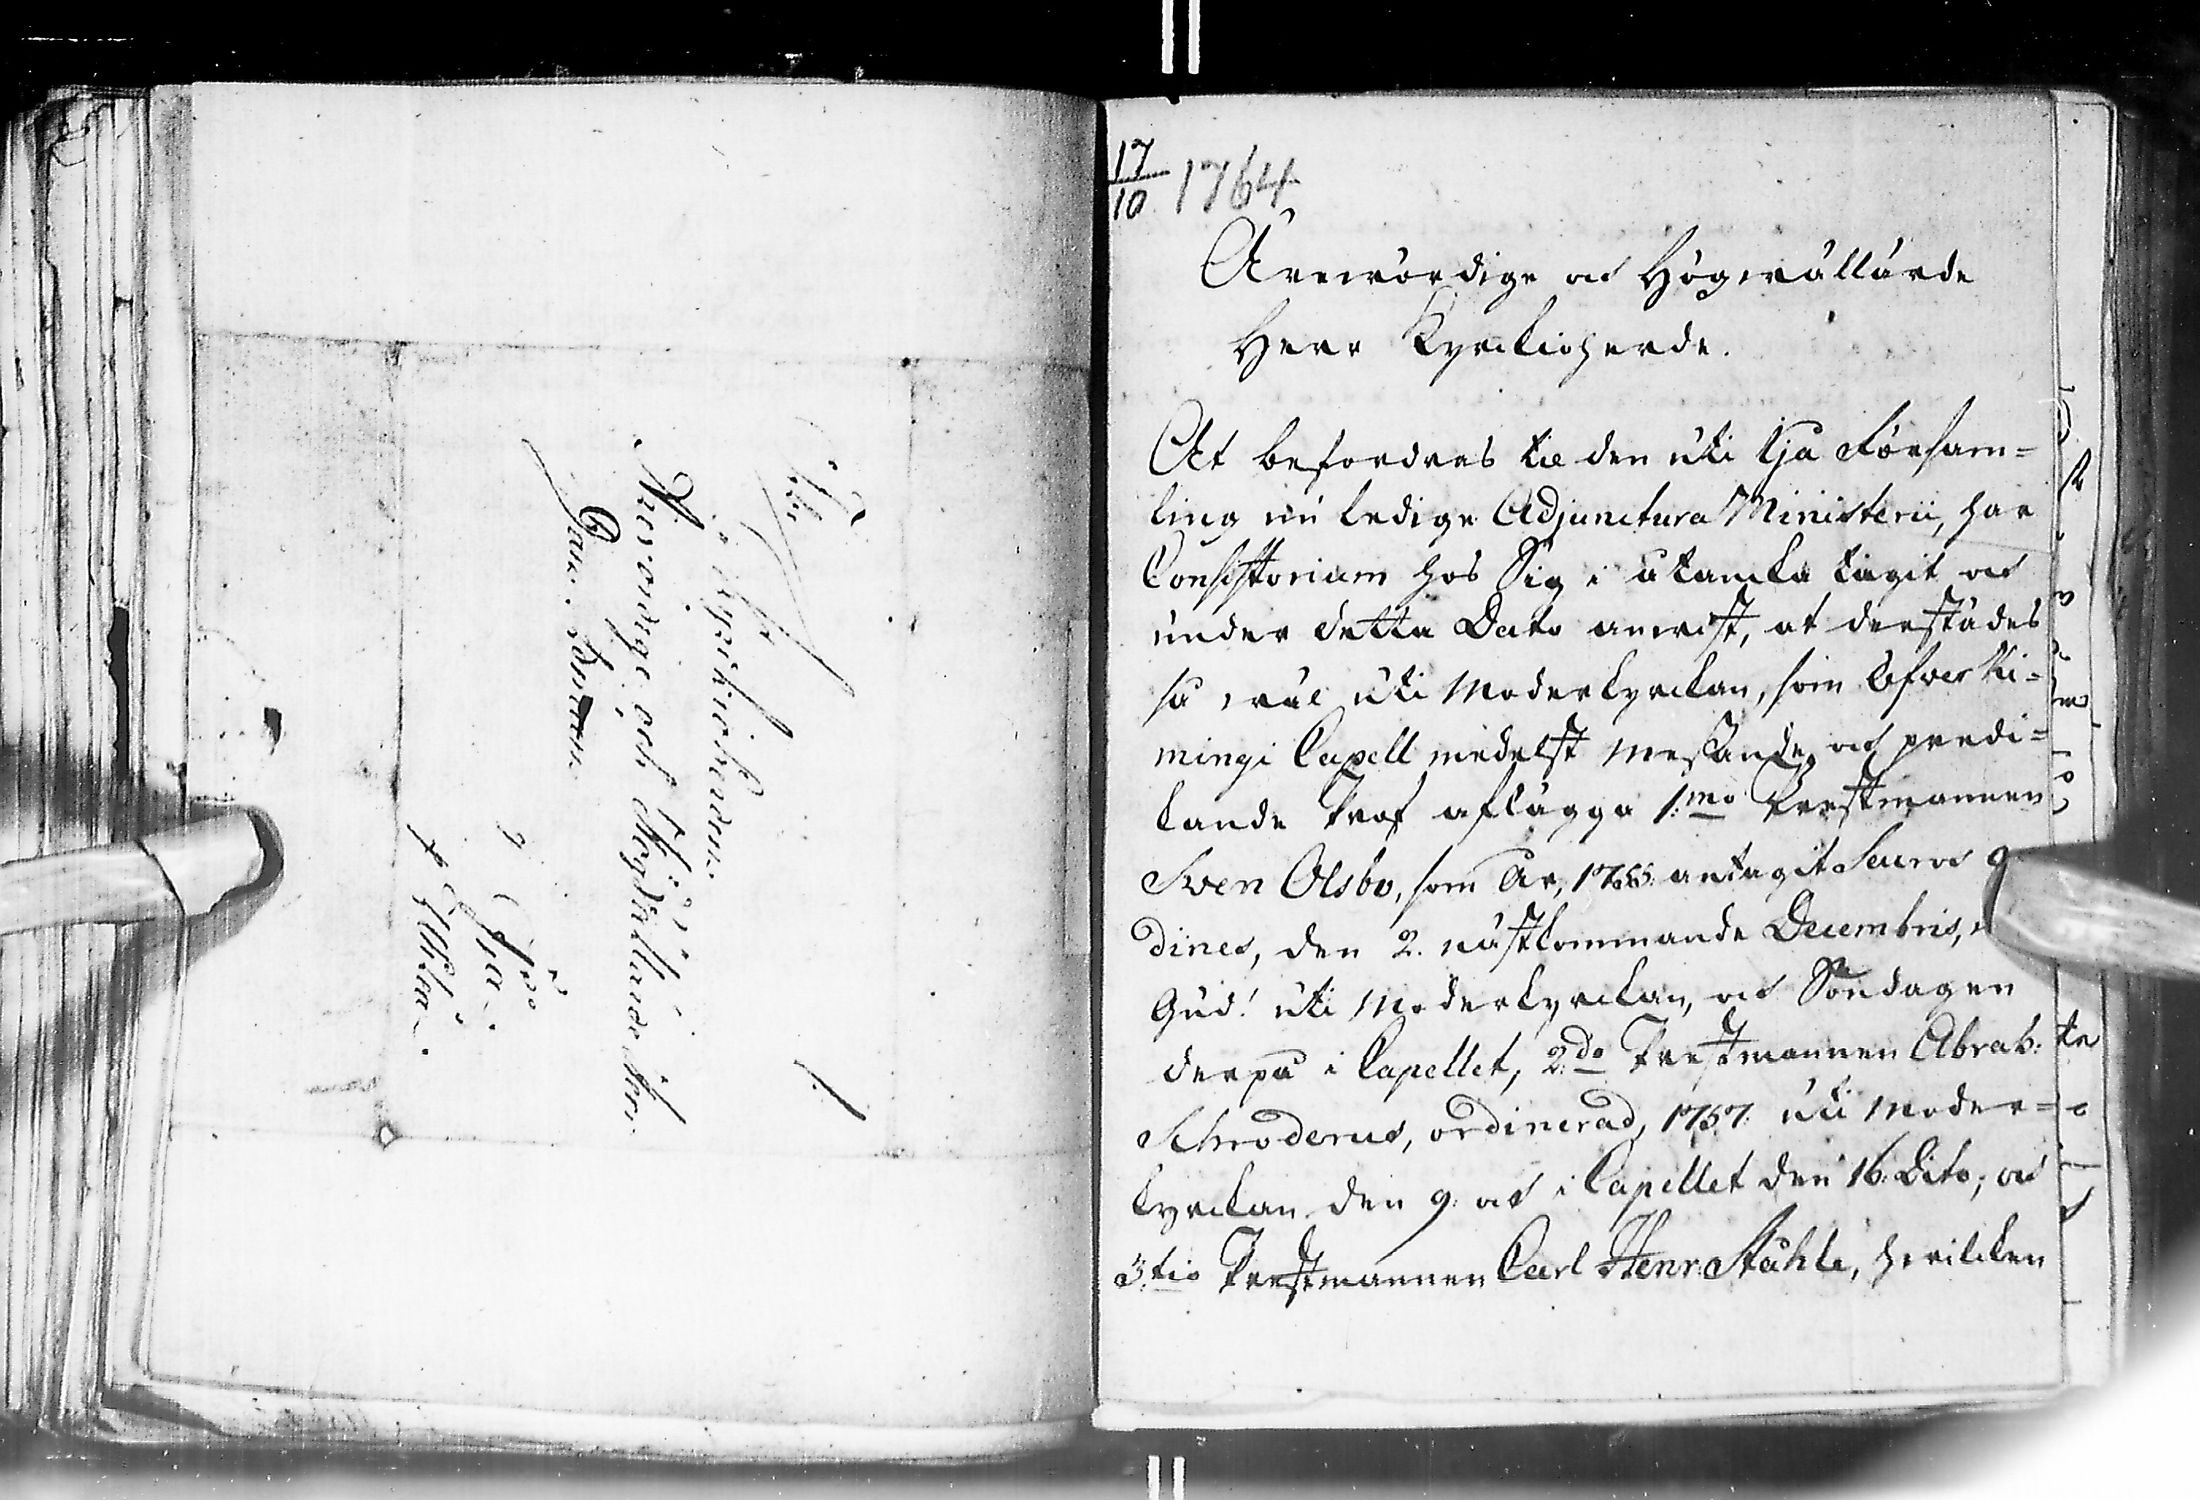 Til
Kyrkioherden
Ärevördige och Höglärde Herr
Joa
17/10 1764
Ärewördige och Högwällärde
Herr Kyrckioherde.
At befordras til den uti Ijo Försam=
ling nu ledige Adjunctura Ministerii, har
Consistorium hos Sig i åtancka tagit och
under detta Dato anwist, at derstädes
så wäl uti Moderkyrckan, som Öfwer Ki=
mingi Capell medelst Messande och predi=
kande Prof aflägga 1:mo Prestmannen
Sven Olsbo, som År, 1755. antagit Sacros
dines, den 2. nästkommande Decembris,
Gud! uti Moderkyrckan, och Söndagen
derpå i Capellet, 2:do Prestmannen Abrah:
Schroderus, ordinerad, 1757. uti Moder=
kyrckan den 9. och i Capellet den 16. Dito; och
3:tio Prestmannen Carl Henr: Ståhle, hwilcken